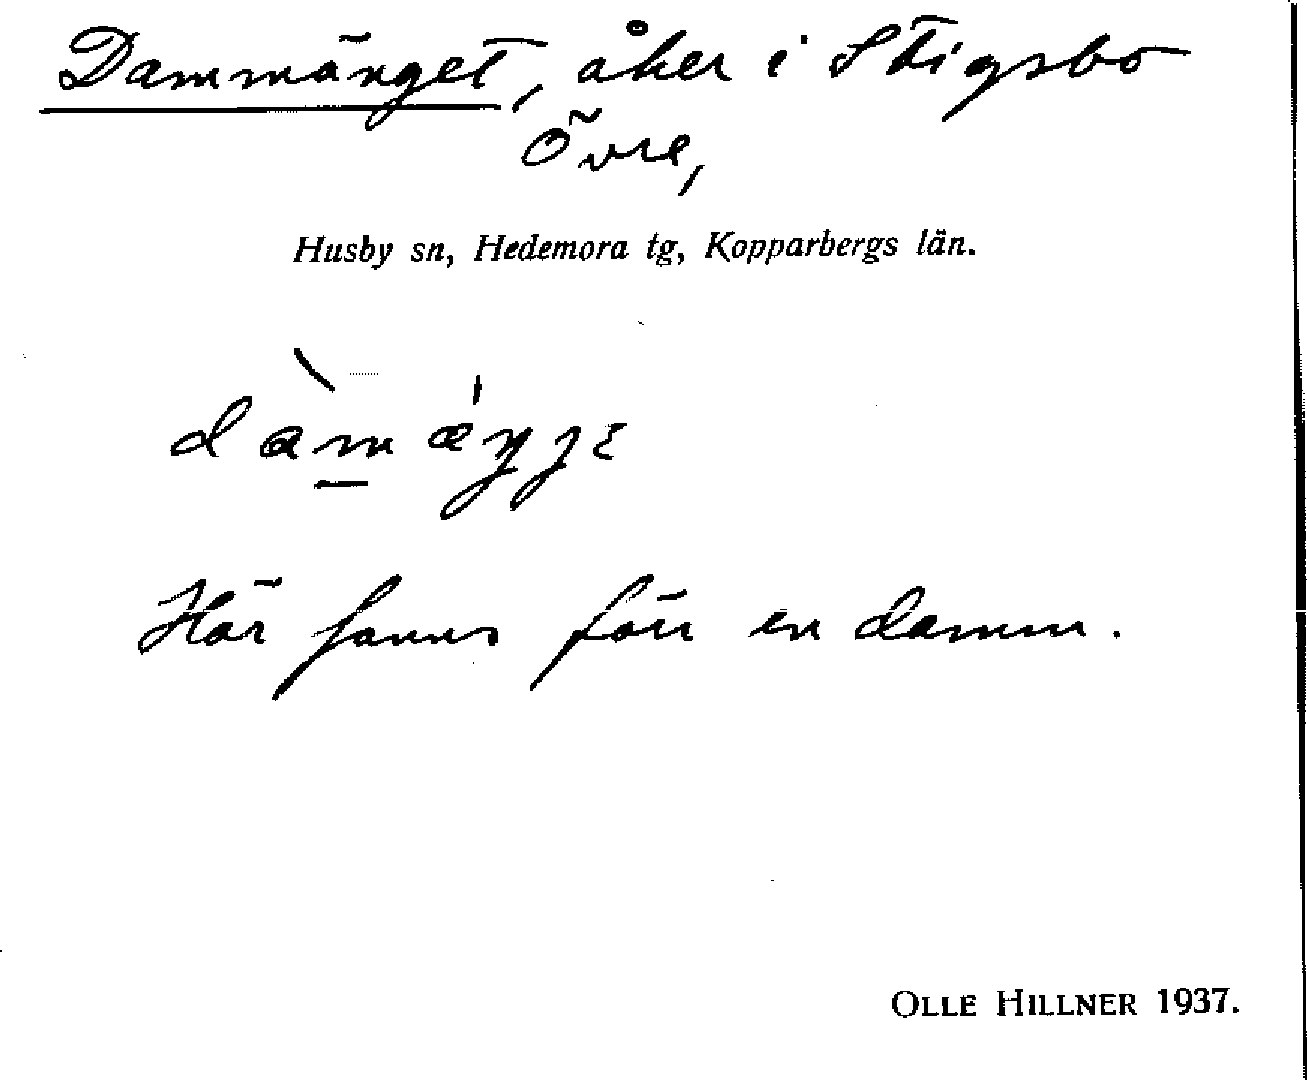 Dammänget, åker i Stigsbo
Övre,
Husby sn, Hedemora tg, Kopparbergs län.
Här fanns förr en damm.
OLLE HILLNER 1937.